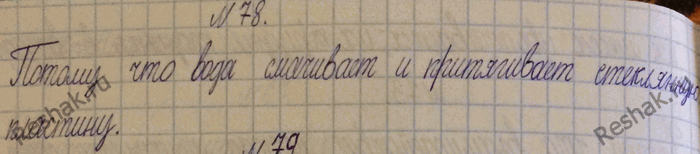 N 78.
Потому что вода смачивает и притягивает стеклянную
пластину.
N 79
Reshak.ru
Reshak.ru